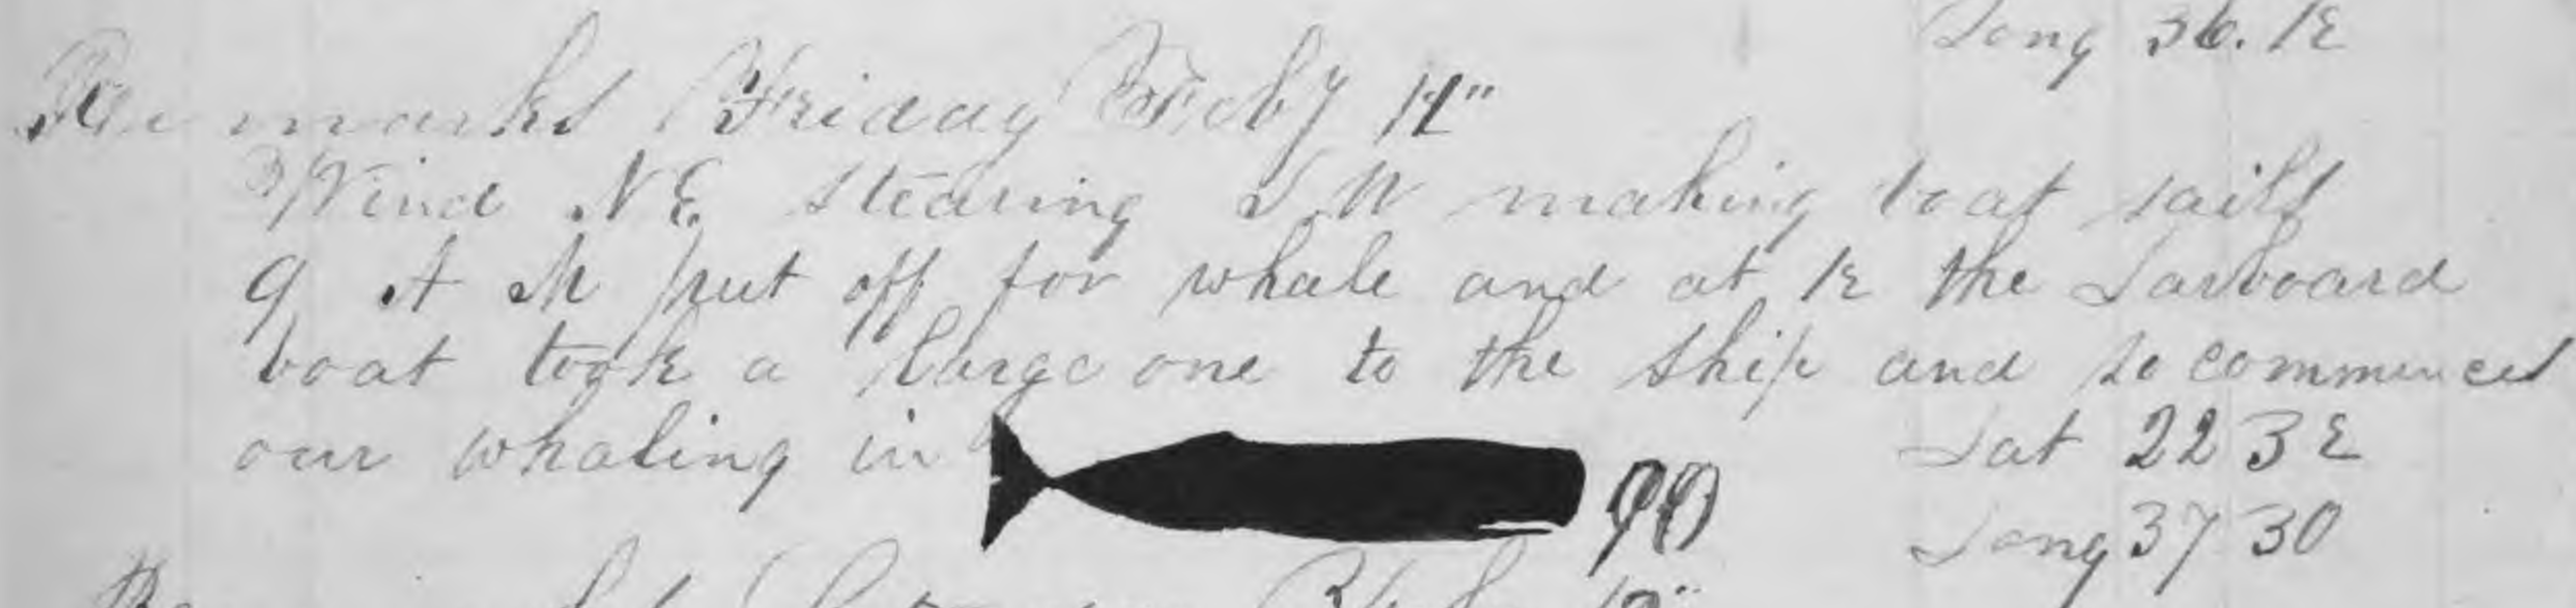 Long 36. 12
Remarks Friday Feby 12"
Wind N E stearing S W making boat sails
9 A M put off for whale and at 12 the Larboard
boat took a large one to the ship and so commenced
our whaling in 90 Lat 22 32
Long 37 30